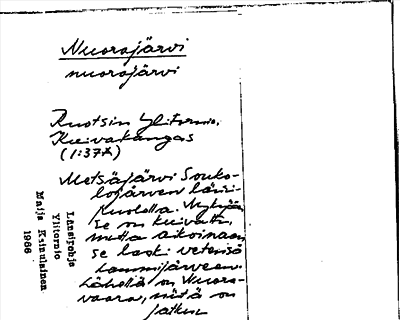 Nuorajärvi
nuorajärvi
Ruotsin Ylitornio,
Kuivakangas
(1:37A)
Metsäjärvi Souko-
lojärven länsi-
puolella. Nykyään
se on kuivattu,
mutta aikoinaan
se laski vetensä
Lammijärveen.
Lähellä on Nuora-
vaara, mitä on
jatkui
Länsipohja
Ylitornio
Maija Kniulainen
1966